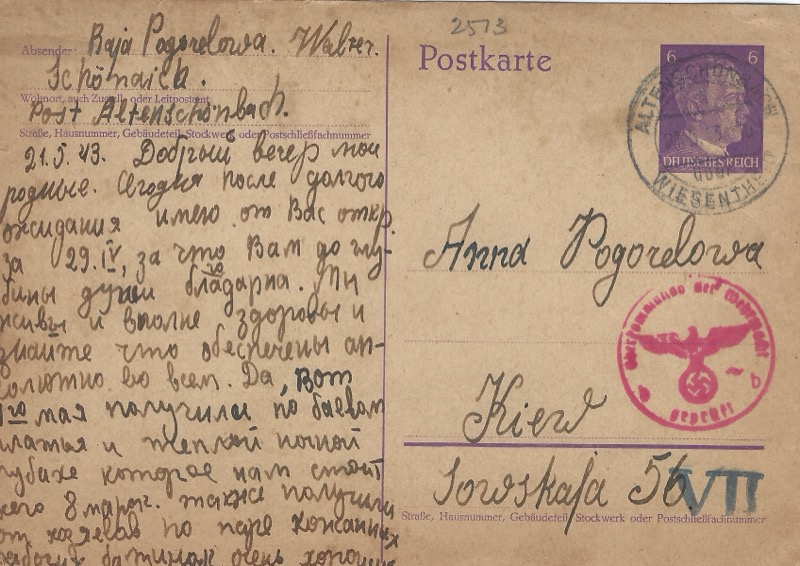 2513
Absender: Baja Pogorelowa. Walter.
Schönaich.
Wohnort, auch Zustell- oder Leitpostamt
Post Altenschönbach.
Straße, Hausnummer, Gebäudeteil, Stockwerk oder Postschließfachnummer
21.5.43. Добрый вечер мои
родные. Сегодня после долгого
ожидания имею от Вас откр.
за 29.IV, за что Вам до глу-
бины души благодарна. Мы
живы и вполне здоровы и
знайте что обеспечены аб-
солютно во всем. Да, вот
мая получили по
платья и теплой ночной
рубахе которое нам стоит
всего 8 марок. также получили
от хозяев по паре кожанных
рабочих очень
Postkarte
6 6
DEUTSCHES REICH
WIESENTHEID
Anna Pogorelowa
Oberkommando der Wehrmacht
b
geprüft
Kiew
Sowskaja 56.
VII
Straße, Hausnummer, Gebäudeteil, Stockwerk oder Postschließfachnummer